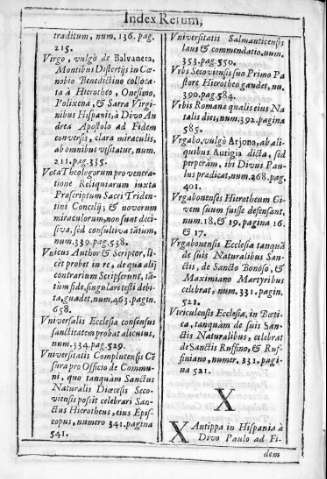 Index Rerum,
traditum, num. 136. pag.
215.
Virgo, vulgò de Balvanera,
Montibus Distertijs in Cœ-
nobio Benedictino colloca-
ta à Hierotheo, Onesimo,
Polixena, & Sarra Virgi-
nibus Hispanis, à Divo An
drea Apostolo ad Fidem
conversis, clara miraculis,
ab omnibus visitatur, num.
211. pag. 335.
Vota Theologorum pro venera-
tione Reliquiarum iuxta
Præscriptum Sacri Triden-
tini Concilij; & novorum
miraculorum, non sunt deci-
siva, sed consultiva tātum,
num. 339. pag. 538.
Vnicus Author & scriptor, li-
cèt probet in re, de qua alij
contrarium scripserunt, tā-
tùm fide, singularo testi debi-
ta, guadet, num. 463. pagin.
658.
Vniversalis Ecclesiæ consensus
sanctitatem probat alicuius,
num. 334. pag. 529.
Vniversitatis Complutensis Cē
sura pro Officio de Commu-
ni, quo tanquàm Sanctus
Naturalis Diœcesis Seco-
viensis possit celebrari San-
ctus Hierotheus, eius Epis-
copus, numero 341. pagina
541.
Vniversitatis Salmanticensis
laus & commendatio, num.
353. pag. 550.
Vrbs Secoviensis suo Primo Pa
store Hierotheo gaudet, nu.
390. pag. 584.
Vrbis Romanæ qualis eius Na
talis dies, num. 392. pagina
585.
Vrgabo, vulgò Arjona, ab ali-
quibus Autigia dicta, sed
perperàm, in Divus Pau-
lus prædicat, num. 268. pag.
401.
Vrgabonensis Hierotheum Ci-
vem suum fuisse defensant,
num. 18, & 19. pagina 16.
& 17.
Vrgabonensis Ecclesia tanquā
de suis Naturalibus San-
ctis, de Sancto Bonoso, &
Maximiano Martyribus
celebrat, num. 331. pagin.
522.
Viriculensis Ecclesia, in Bœti-
ca, tanquàm de suis San-
ctis Naturalibus, celebrat
de Sanctis Ruffino, & Ruf-
finiano, numer. 331. pagi-
na 521.
X
X Antippa in Hispania à
Divo Paulo ad Fi-
dem